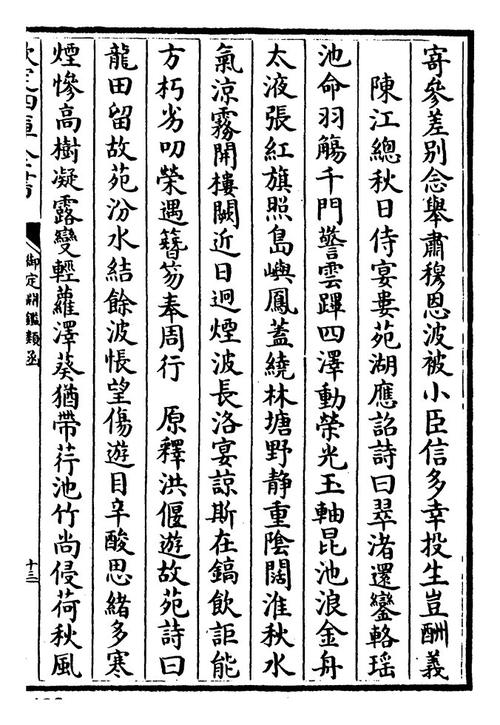 寄參差別念舉肅穆恩波被小臣信多幸投生豈酬義
陳江總秋日侍宴婁苑湖應詔詩曰翠渚還鑾輅瑶
池命羽觴千門響雲蹕四澤動榮光玉軸昆池浪金舟
太液張紅旗照島嶼鳳蓋繞林塘野静重陰闊淮秋水
氣涼霧開樓闕近日迥煙波長洛宴諒斯在鎬飲詎能
方朽劣叨榮遇簪笏奉周行　原釋洪偃遊故苑詩曰
龍田留故苑汾水結餘波悵望傷遊目辛酸思緒多寒
煙慘高樹凝露變輕蘿澤葵猶帶荇池竹尚侵荷秋風
欽定四庫全書
御定淵鑑類函
十三